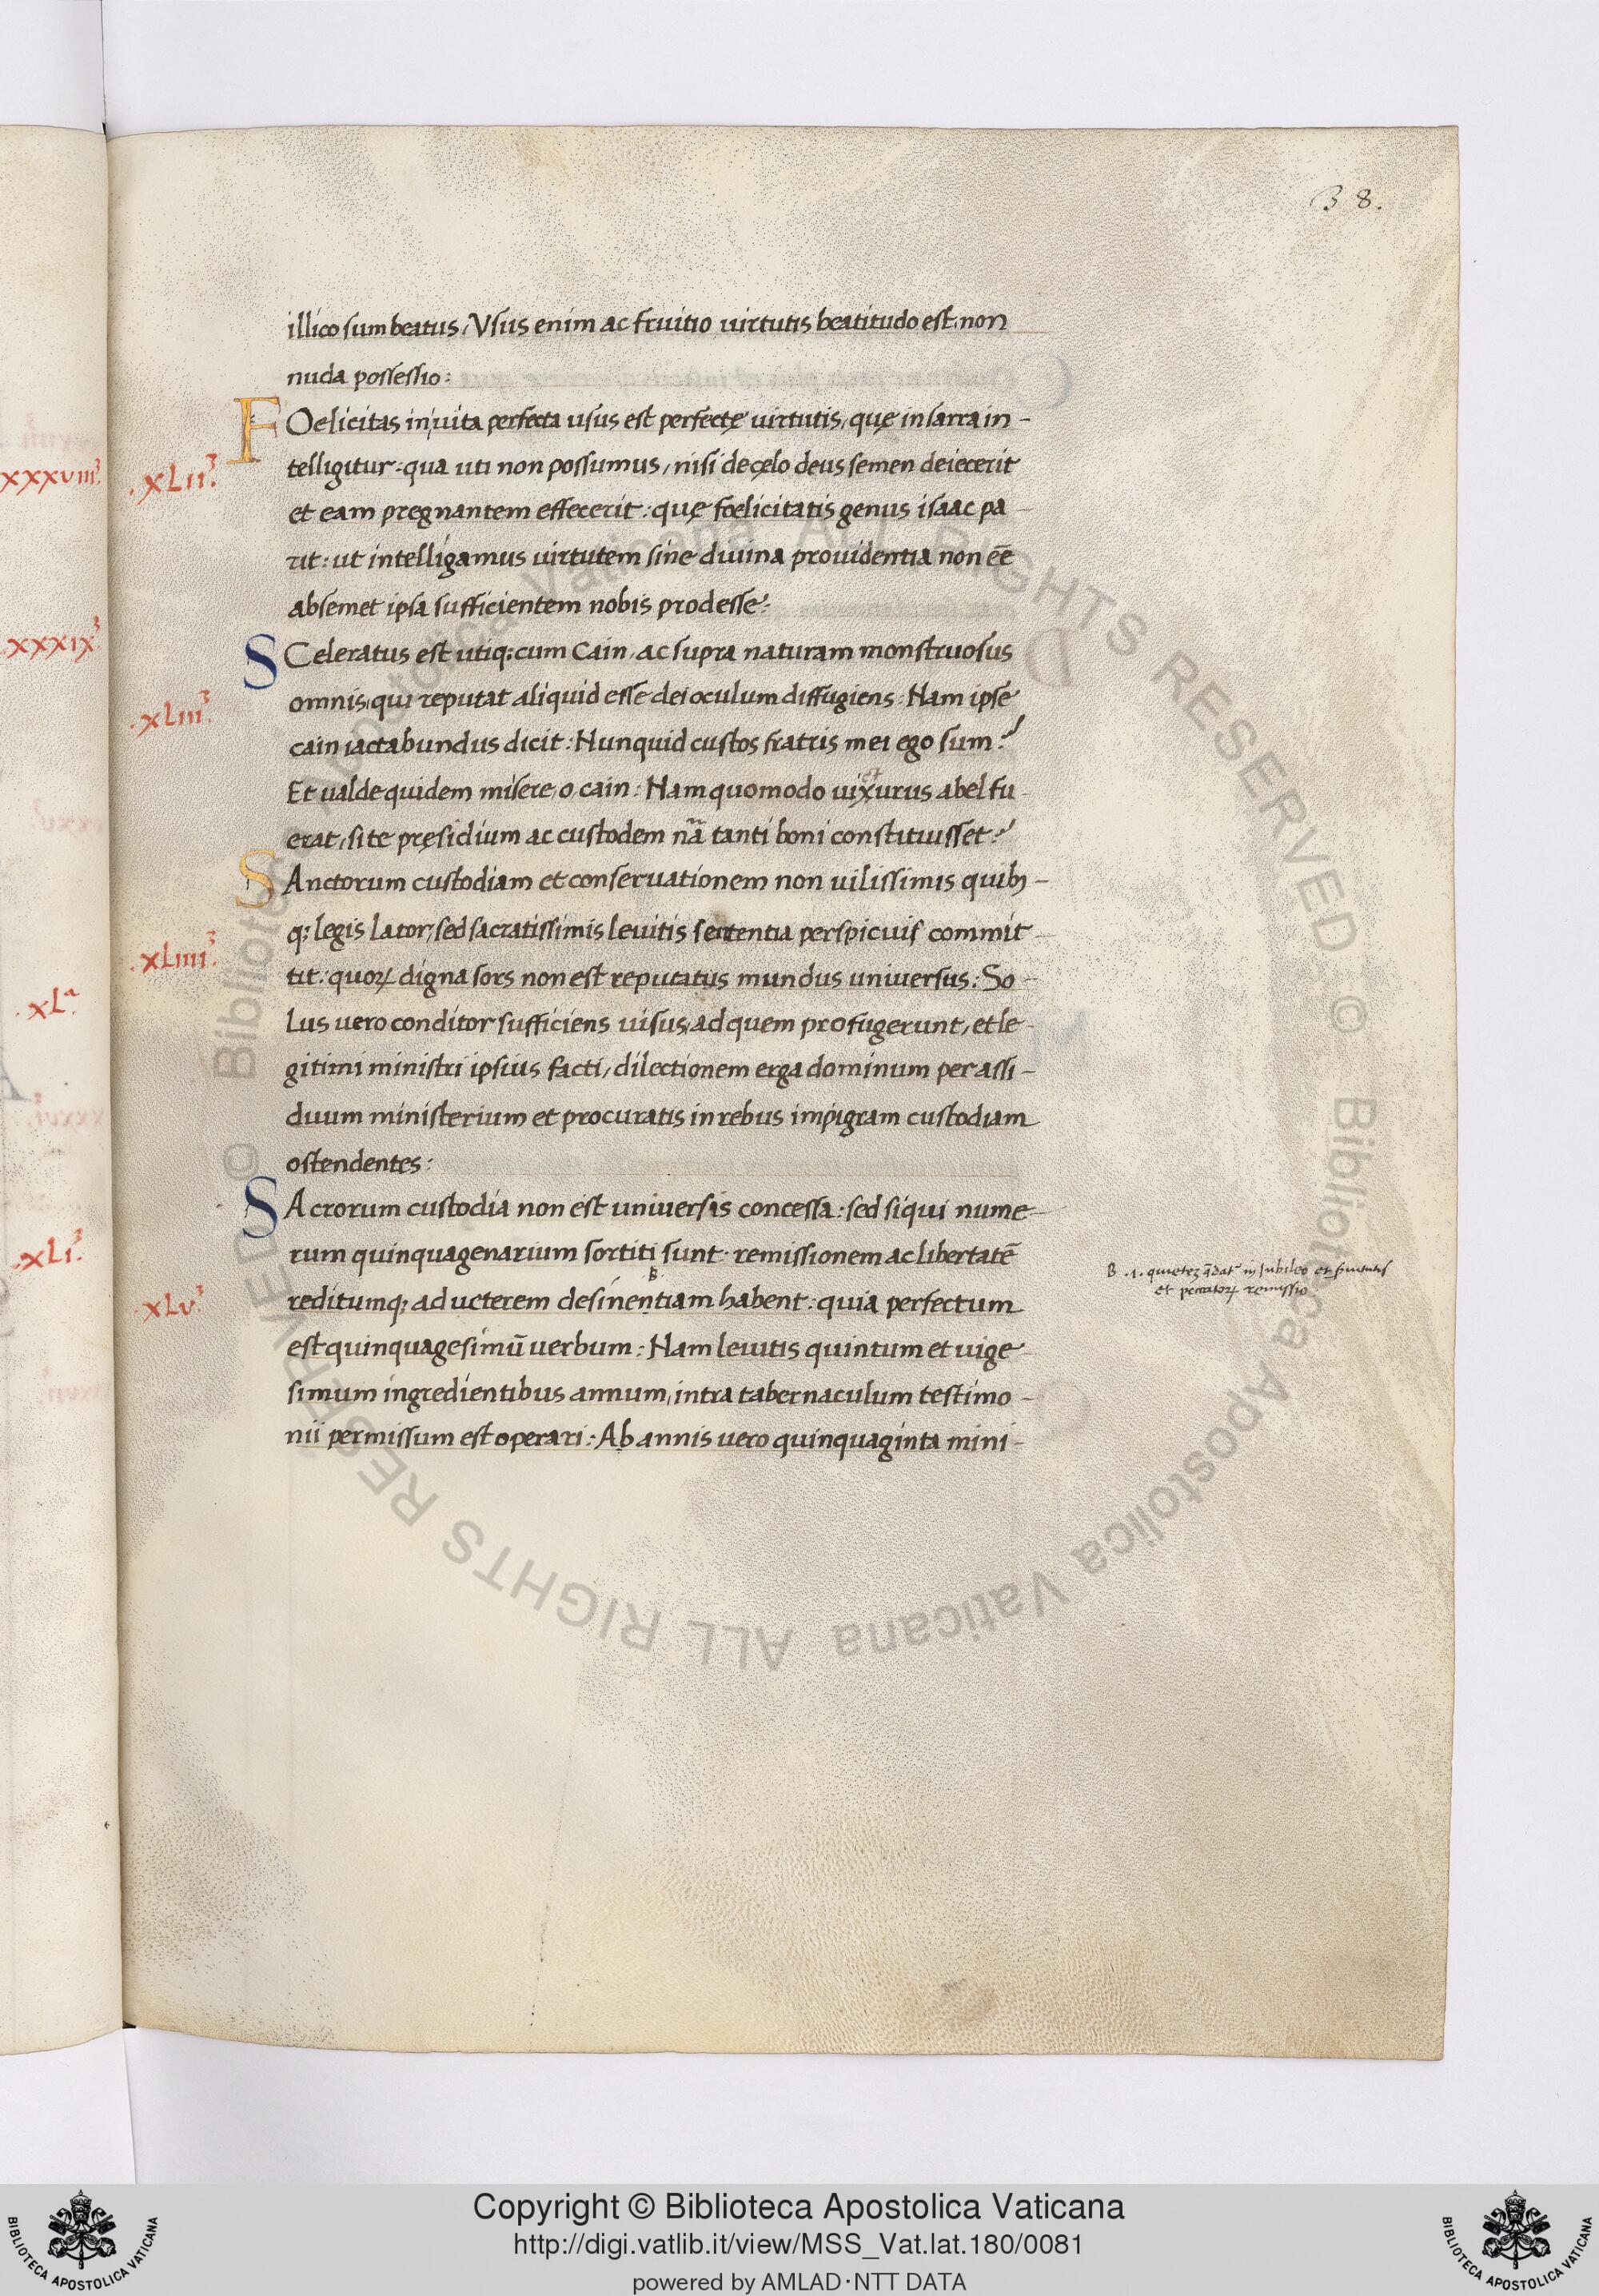 38.
illico sum beatus, Vsus enim ac fruitio uirtutis beatitudo est, non
nuda possessio:
FOelicitas in uita perfecta usus est perfectę uirtutis, quę in sarra in-
telligitur: qua uti non possumus, nisi de cęlo deus semen deiecerit
et eam pregnantem effecerit: quę foelicitatis genus isaac pa-
rit: ut intelligamus uirtutem sine diuina prouidentia non eē
absemet ipsa sufficientem nobis prodesse:
SCeleratus est utiq; cum Cain, ac supra naturam monstruosus
omnis, qui reputat aliquid esse dei oculum diffugiens: Nam ipse
cain iactabundus dicit: Nunquid custos fratris mei ego sum?
Et ualde quidem misere, o cain: Nam quomodo uixurus abel fu-
erat, si te pręsidium ac custodem nā tanti boni constituisset?
SAnctorum custodiam et conseruationem non uilissimis quib-
q; legis lator, sed sacratissimis leuitis sententia perspicuis commit-
tit: quoꝝ digna sors non est reputatus mundus uniuersus: So-
lus uero conditor sufficiens uisus, ad quem profugerunt, et le-
gitimi ministri ipsius facti, dilectionem erga dominum per assi-
duum ministerium et procuratis in rebus impigram custodiam
ostendentes:
SAcrorum custodia non est uniuersis concessa: sed siqui nume-
rum quinquagenarium sortiti sunt. remissionem ac libertatē
reditumq; ad ueterem desinentiam habent: quia perfectum
est quinquagesimū uerbum: Nam leuitis quintum et uige-
simum ingredientibus annum, intra tabernaculum testimo-
nii permissum est operari: Ab annis uero quinquaginta mini-
.xLii.ᵃ
.xLiii.ᵃ
.xLiiii.ᵃ
.xLv.ᵃ
xxxviii.ᵃ
.xxxix.ᵃ
.xL.ᵃ
.xLi.ᵃ
B
B .i. quietez in Jubileo et
et peccatoꝝ remissio
Copyright © Biblioteca Apostolica Vaticana
http://digi.vatlib.it/view/MSS_Vat.lat.180/0081
powered by AMLAD·NTT DATA
BIBLIOTECA APOSTOLICA VATICANA
BIBLIOTECA APOSTOLICA VATICANA
© Biblioteca Apostolica Vaticana ALL RIGHTS RESERVED © Biblioteca Apostolica Vaticana ALL RIGHTS RESERVED